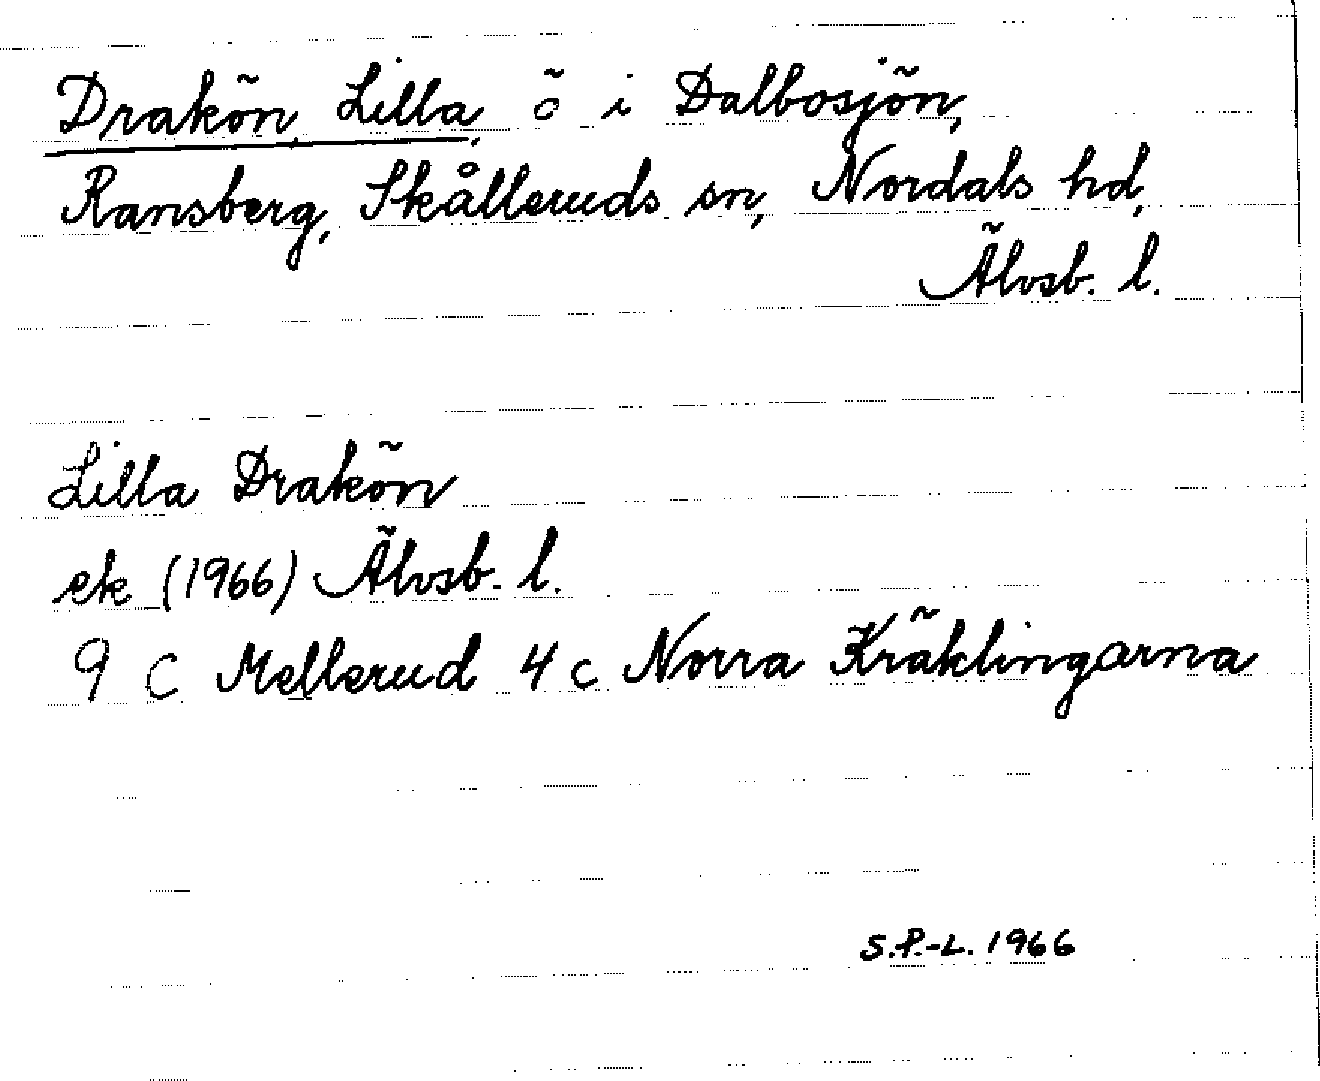 Drakön, Lilla, ö i Dalbosjön,
Ransberg, Skålleruds sn, Nordals hd,
Älvsb. l.
Lilla Drakön
ek (1966) Älvsb. l.
9 C Mellerud 4 c Norra Kräklingarna
S.P.-L. 1966